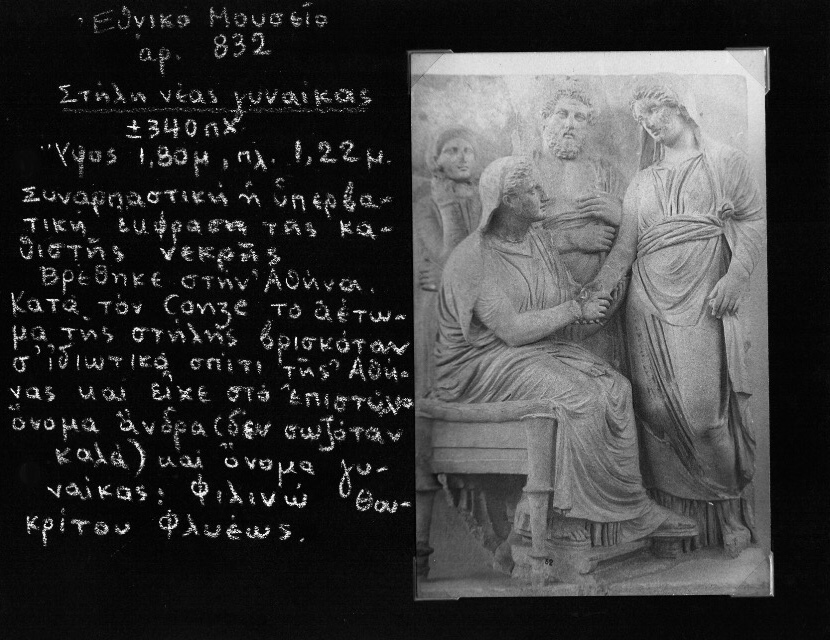 Ἐθνικό Μουσείο
ἀρ. 832
Στήλη νέας γυναίκας
±340 πΧ
Ὕψος 1,80μ, πλ. 1,22 μ.
Συναρπαστική ἡ ὑπερβα-
τική ἔκφραση τῆς κα-
θιστῆς νεκρῆς
Βρέθηκε στήν Ἀθήνα.
Κατά τόν Conze τό ἀέτω-
μα τῆς στήλης βρισκόταν
σ' ἰδιωτικό σπίτι τῆς Ἀθή-
νας καί εἶχε στό ἐπιστύλιο
ὄνομα ἄνδρα (δέν σωζόταν
καλά) καί ὄνομα γυ-
ναίκας: Φιλινώ Θου-
κρίτου Φλυέως.
52